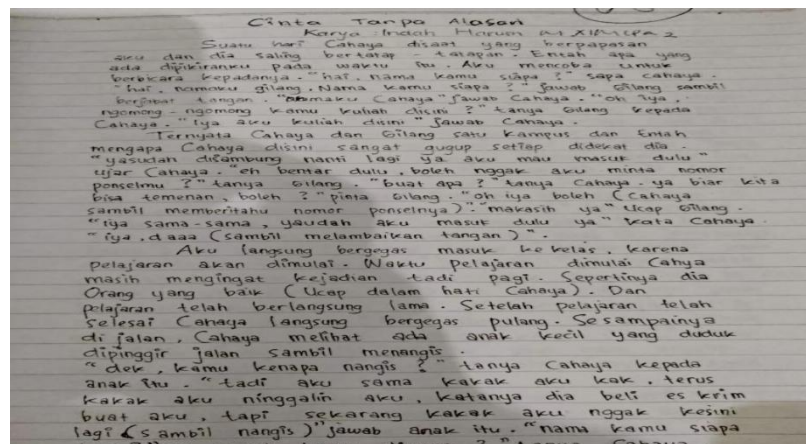 Cinta Tanpa Alasan
Karya Indah Harum M XI MIPA 2
Suatu hari Cahaya disaat yang berpapasan
aku dan dia saling bertatap - tatapan. Entah apa yang
ada dipikiranku pada waktu itu. Aku mencoba untuk
berbicara kepadanya. "hai, nama kamu siapa ?" sapa cahaya.
"hai, namaku gilang, Nama kamu siapa ?" jawab Gilang sambil
berjabat tangan. "namaku Cahaya" jawab Cahaya. "oh iya,
ngomong - ngomong kamu kuliah disini ?" tanya Gilang kepada
Cahaya. "iya aku kuliah disini" jawab Cahaya.
Ternyata Cahaya dan Gilang satu kampus dan Entah
mengapa Cahaya disini sangat gugup setiap didekat dia.
"yasudah disambung nanti lagi ya aku mau masuk dulu"
ujar Cahaya. "eh bentar dulu, boleh nggak aku minta nomor
ponselmu ?" tanya Gilang. "buat apa ?" tanya Cahaya. ya biar kita
bisa temenan, boleh ? "pinta Gilang. "oh iya boleh (Cahaya
sambil memberitahu nomor ponselnya)". "makasih ya" Ucap Gilang.
"iya sama-sama, yaudah aku masuk dulu ya" kata Cahaya.
"iya, daaa (sambil melambaikan tangan)".
Aku langsung bergegas masuk ke kelas, karena
pelajaran akan dimulai. Waktu pelajaran dimulai Cahya
masih mengingat kejadian tadi pagi. Sepertinya dia
Orang yang baik (Ucap dalam hati Cahaya). Dan
pelajaran telah berlangsung lama. Setelah pelajaran telah
selesai Cahaya langsung bergegas pulang. Sesampainya
di jalan, Cahaya melihat ada anak kecil yang duduk
dipinggir jalan sambil menangis.
"dek, kamu kenapa nangis ?" tanya Cahaya kepada
anak itu. "tadi aku sama kakak aku kak, terus
kakak aku ninggalin aku, katanya dia beli es krim
buat aku, tapi sekarang kakak aku nggak kesini
lagi (sambil nangis)" jawab anak itu. "nama kamu siapa